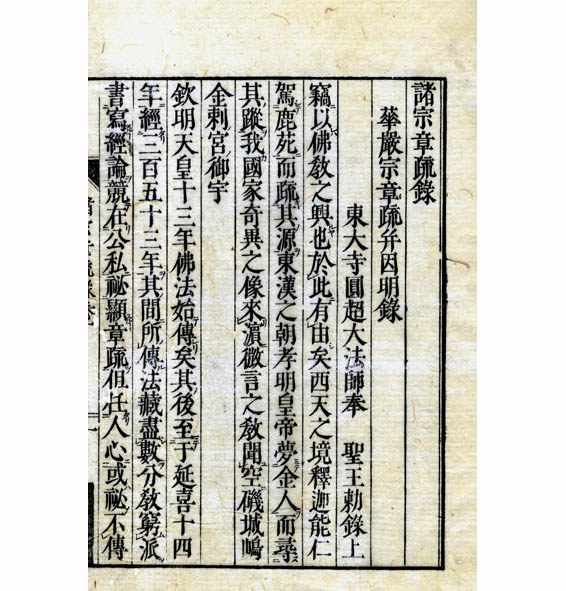 諸宗章疏錄
華嚴宗章疏并因明錄
東大寺圓超大法師奉　聖王勅錄上
竊以佛教之興也於此有由矣西天之境釋迦能仁
駕鹿苑而疏其源東漢之朝孝明皇帝夢金人而尋
其蹤我國家奇異之像來濵微言之教聞空礒城嶋
金刺宮御宇
欽明天皇十三年佛法始傳矣其後至于延喜十四
年經三百五十三年其間所傳法藏盡數分教窮派
書寫經論競在公私祕顯章疏但任人心或祕不傳